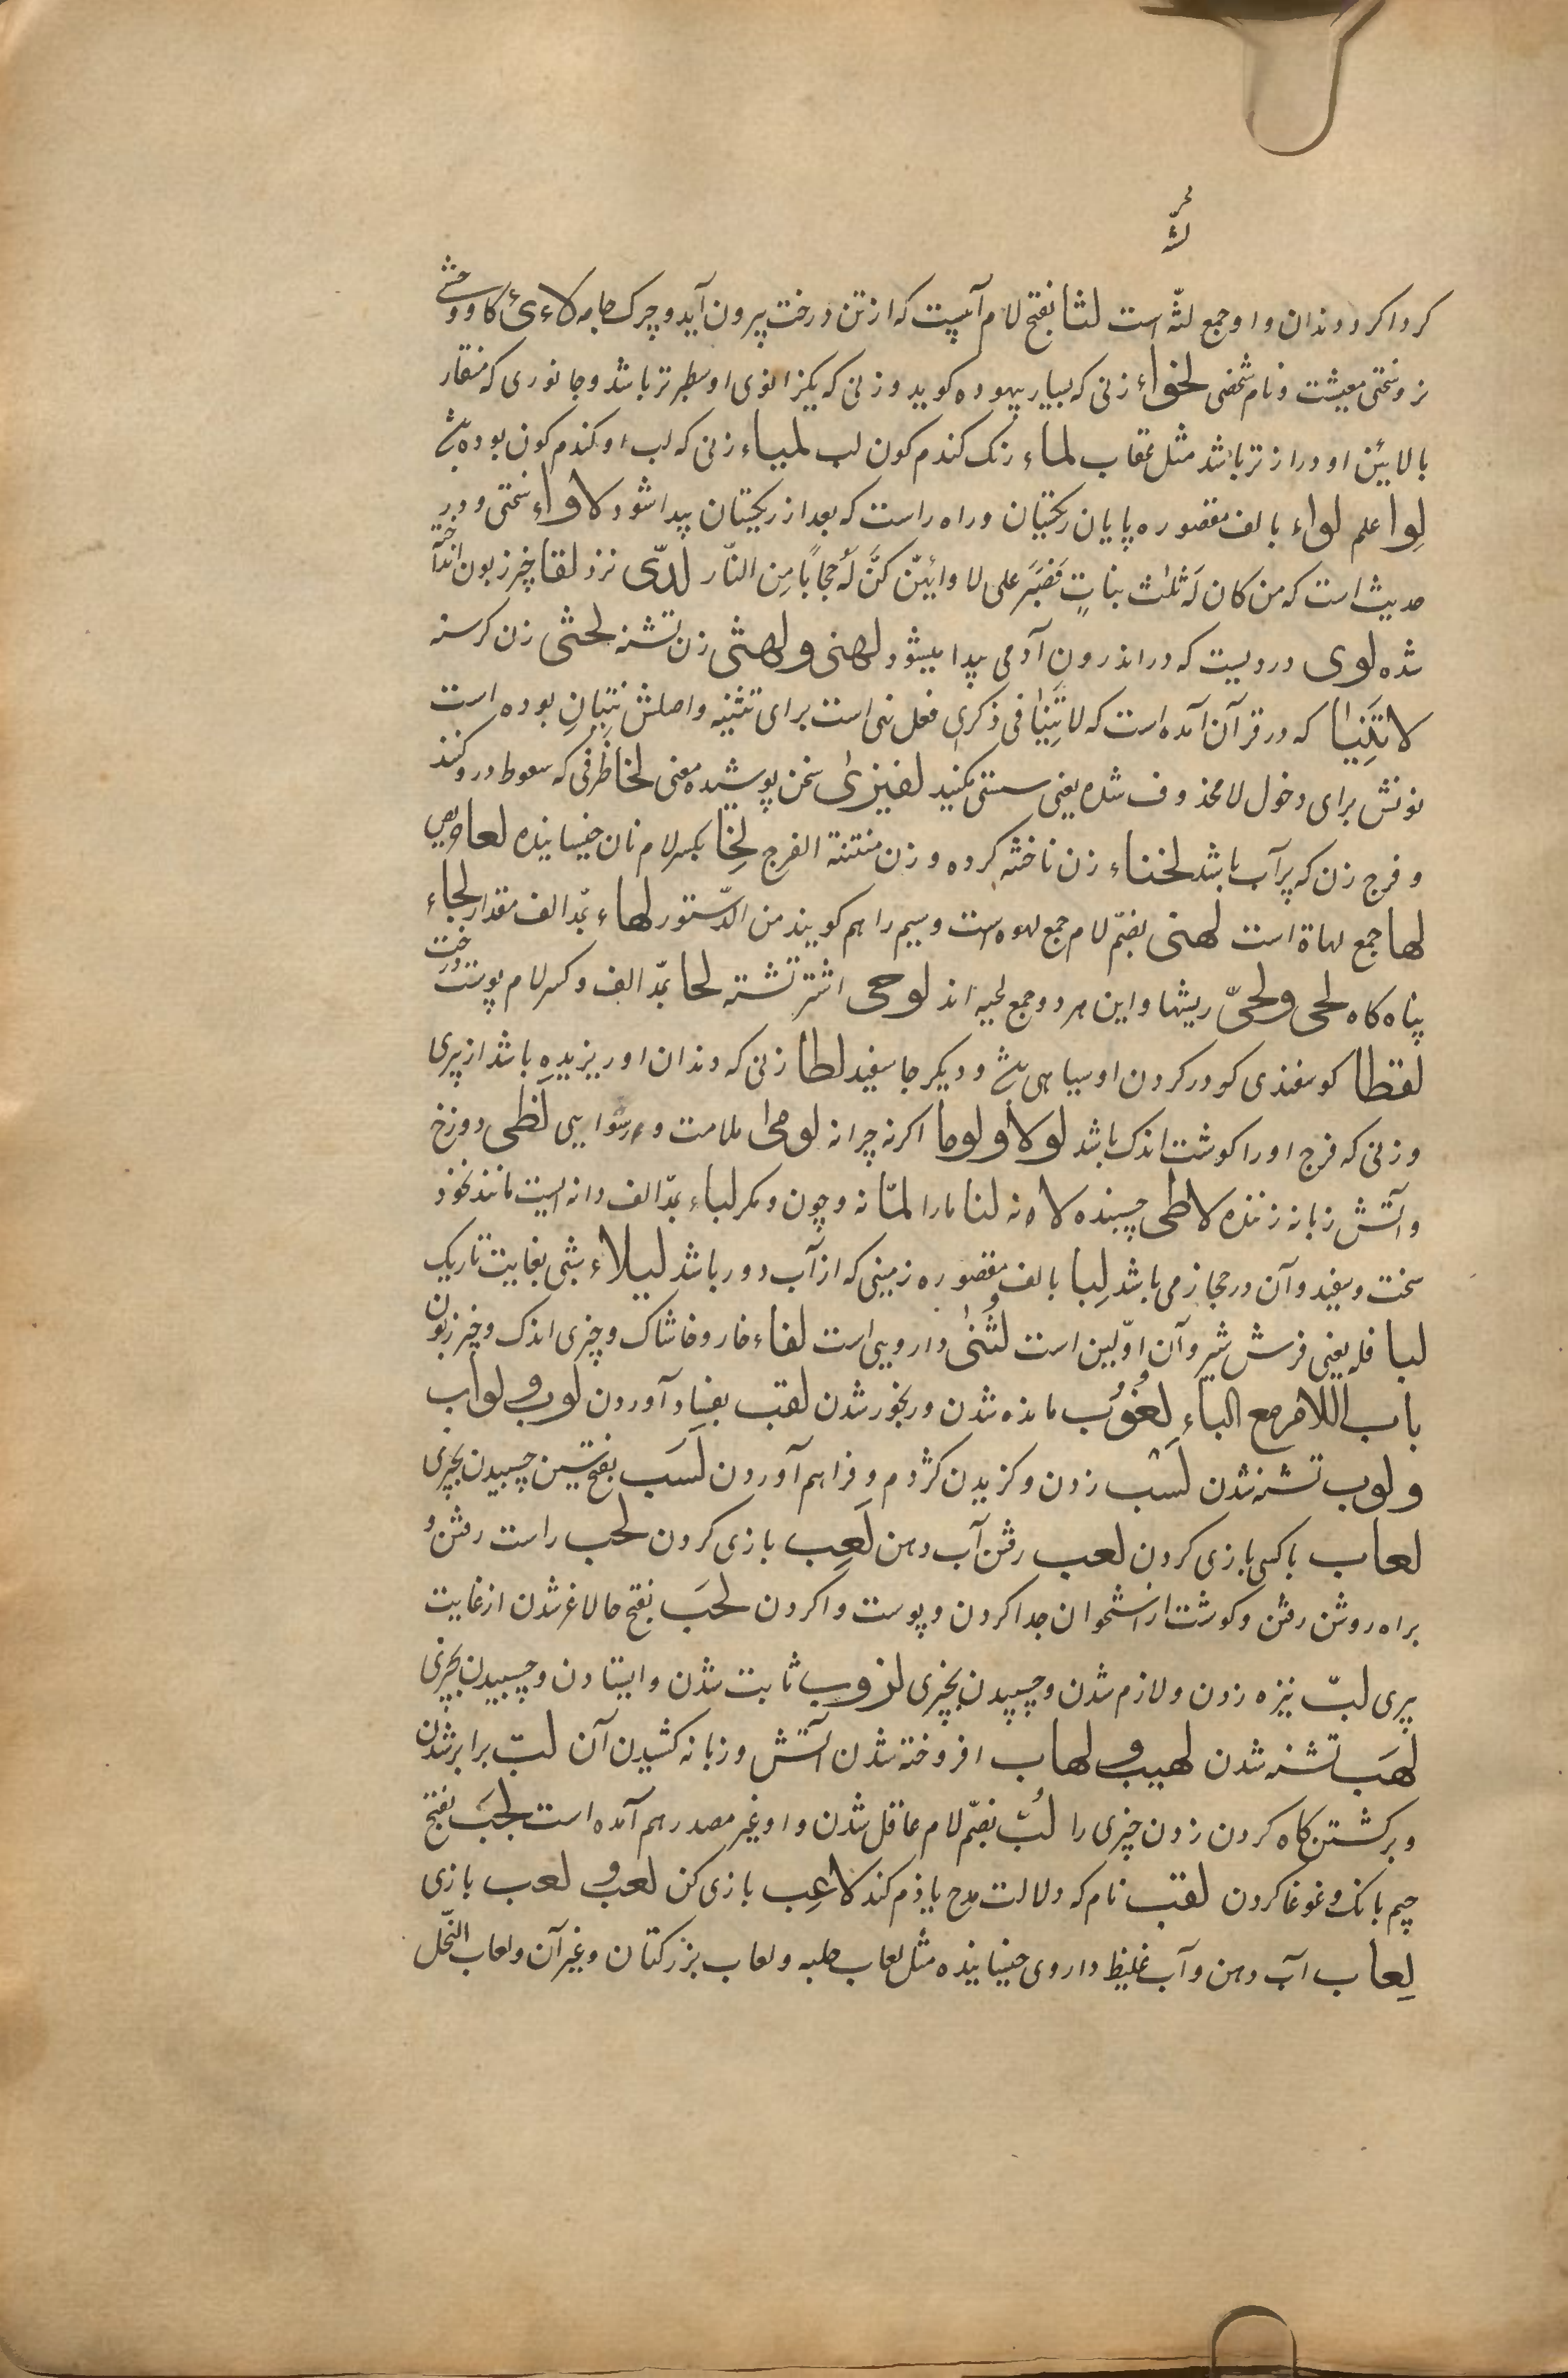 کرداکرد دندان و او جمع لثّه است لثا بفتح لام آبیست که از تن درخت بیرون آید و چرک جامه لاءیٔ کاو وحشی
نر و سختی معیشت و نام شخصی لخواء زنی که بسیار بیهوده کوید و زنی که یکزانوی او سطبرتر باشد و جانوری که منقار
بالایین او درازتر باشد مثل عقاب لماء رنک کندم کون لب لمیاء زنی که لب او کندم کون بوده
لِوا علم لواء بالف مقصوره پایان ریکستان و راه راست که بعد از ریکستان پیدا شود لاواء سختی و در
حدیث است که من کان لَه ثلٰث بناتٍ فَصَبَرَ علی لاوائهنّ کنَّ لَه حجاباً مِن النّار لدّی نزد لقا چیز زبون انداخته
شده لوی دردیست که در اندرون آدمی پیدا میشود لهنی و لهثی زن تشنه لحثی زن کرسنه
لا تَنِیا که در قرآن آمده است که لا تَنِیا فی ذکری فعل نهی است برای تثنیه و اصلش تنیانِ بوده است
نونش برای دخول لا محذوف شده یعنی سستی مکنید لغیزیٰ سخن پوشیده معنی لخا ظرفی که سعوط در و کنند
و فرج زن که پرآب باشد لخناء زن ناختنه کرده و زن منتنة الفرج لِخا بکسر لام نان خیسانیده لعا حریص
لها جمع لهاة است لهنی بضمّ لام جمع لهوه است و سیم را هم کویند من الدّستور لهاء بمّد الف مقدار لجاء
پناه کاه لحی و لحیّ ریشها و این هر دو جمع لحیه اند لوحی اشتر تشنه لحا بمّد الف و کسر لام پوست درخت
لقطا کوسفندی کو در کردن او سیاهی و دیکر جا سفید لطا زنی که دندان او ریزیده باشد از پیری
و زنی که فرج او را کوشت اندک باشد لولا و لوما اکرنه چرا نه لومیٰ ملامت و رسوایی لَظی دوزخ
و آتش زبانه زننده لاطی چسبنده لا نه لنا مارا لمّا نه و چون و مکر لباء بمّد الف دانه ایست مانند نخود
سخت و سفید و آن در حجاز می باشد لِبا بالف مقصوره زمینی که از آب دور باشد لیلاء شبی بغایت تاریک
لبا فله یعنی فرش شیر و آن اوّلین است لُثنیٰ دارویی است لفاء خار و خاشاک و چیزی اندک و چیز زبون
باب اللام مع الباءِ لُغُوب مانده شدن و رنجور شدن لقب بفساد آوردن لوب و لواب
و لوب تشنه شدن لَسْب زدن و کزیدن کژدم و فراهم آوردن لَسَب بفتح سین چسبیدن بچیزی
لعاب با کسی بازی کردن لعب رفتن آب دهن لَعِب بازی کردن لحب راست رفتن و
براه روشن رفتن و کوشت از استخوان جدا کردن و پوست وا کردن لحَب بفتح حا لاغر شدن از غایت
پیری لبّ نیزه زدن و لازم شدن و چسپیدن بچیزی لزوب ثابت شدن و ایستادن و چسبیدن بچیزی
لَهَب تشنه شدن لهیب و لهاب افروخته شدن آتش و زبانه کشیدن آن لبّ برابر شدن
و برکشتن کاه کردن زدن چیزی را لُبّ بضمّ لام عاقل شدن و او غیر مصدر هم آمده است لجَب بفتح
جیم بانک و غوغا کردن لقب نام که دلالت مدح یا ذم کند لاعِب بازی کن لعب و لعب بازی
لِعاب آب دهن و آب غلیظ داروی خیسانیده مثل لعاب حلبه و لعاب بزر کتان و غیر آن و لعاب النّحل